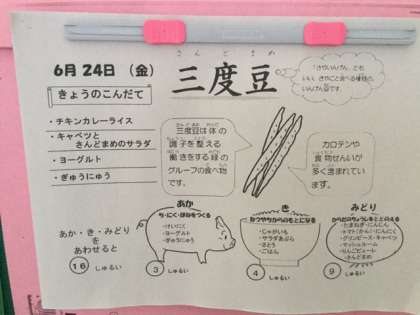 さんどまめ
三度豆
6月24日 (金)
きょうのこんだて
・チキンカレーライス
・キャベツと
さんどまめのサラダ
・ヨーグルト
・ぎゅうにゅう
「さやいんげん」とも
いい、さやごと食べる種類の
いんげん豆です。
三度豆は体の
調子を整える
働きをする緑の
グループの食べ物
です。
カロテンや
食物せんいが
多く含まれてい
ます。
あか・き・みどり
を
あわせると
16 しゅるい
あか
ち・にく・ほねをつくる
・けいにく
・ヨーグルト
・ぎゅうにゅう
3 しゅるい
き
ねつやちからのもとになる
・じゃがいも
・サラダあぶら
・さとう
・ごはん
4 しゅるい
みどり
からだのちょうしをととのえる
・たまねぎ・にんじん
・トマト(かん)・にんにく
・グリンピース・キャベツ
・マッシュルーム
・りんごピューレ
・さんどまめ
9 しゅるい